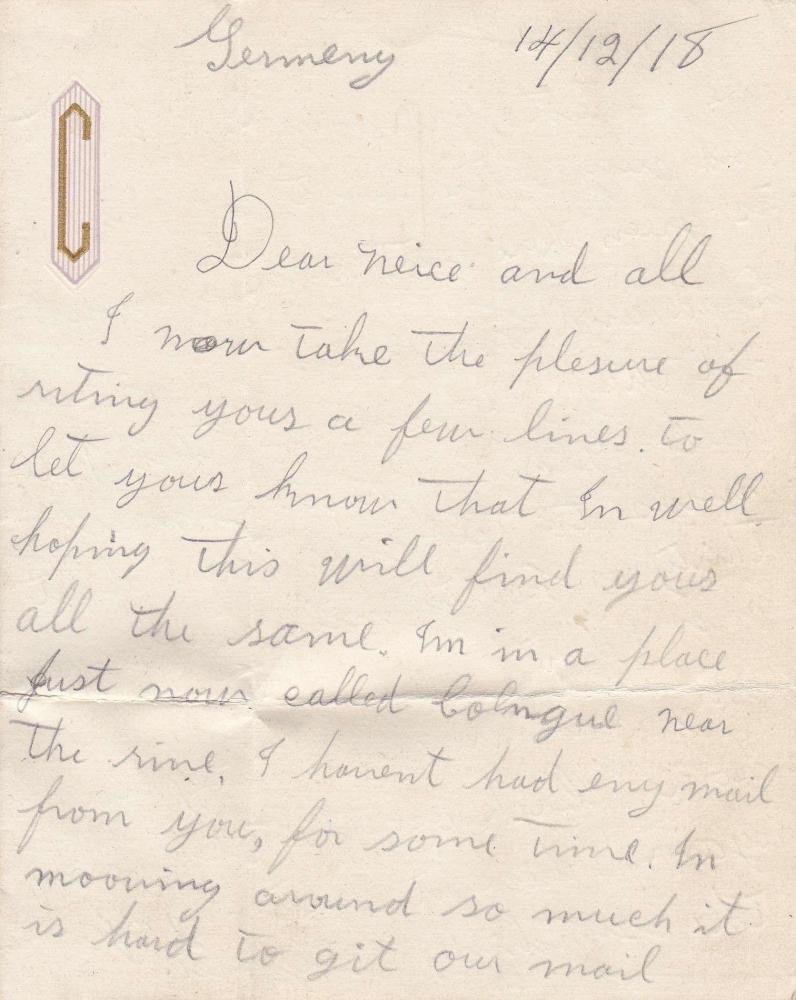 Germeny 14/12/18
C
Dear neice and all
I now take the plesure of
riting yous a few lines. to
let yous know that Im well
hoping this will find yous
all the same. Im in a place
just now called Colngue near
the rine. I havent had eny mail
from you, for some time. Im
mooving around so much it
is hard to git our mail